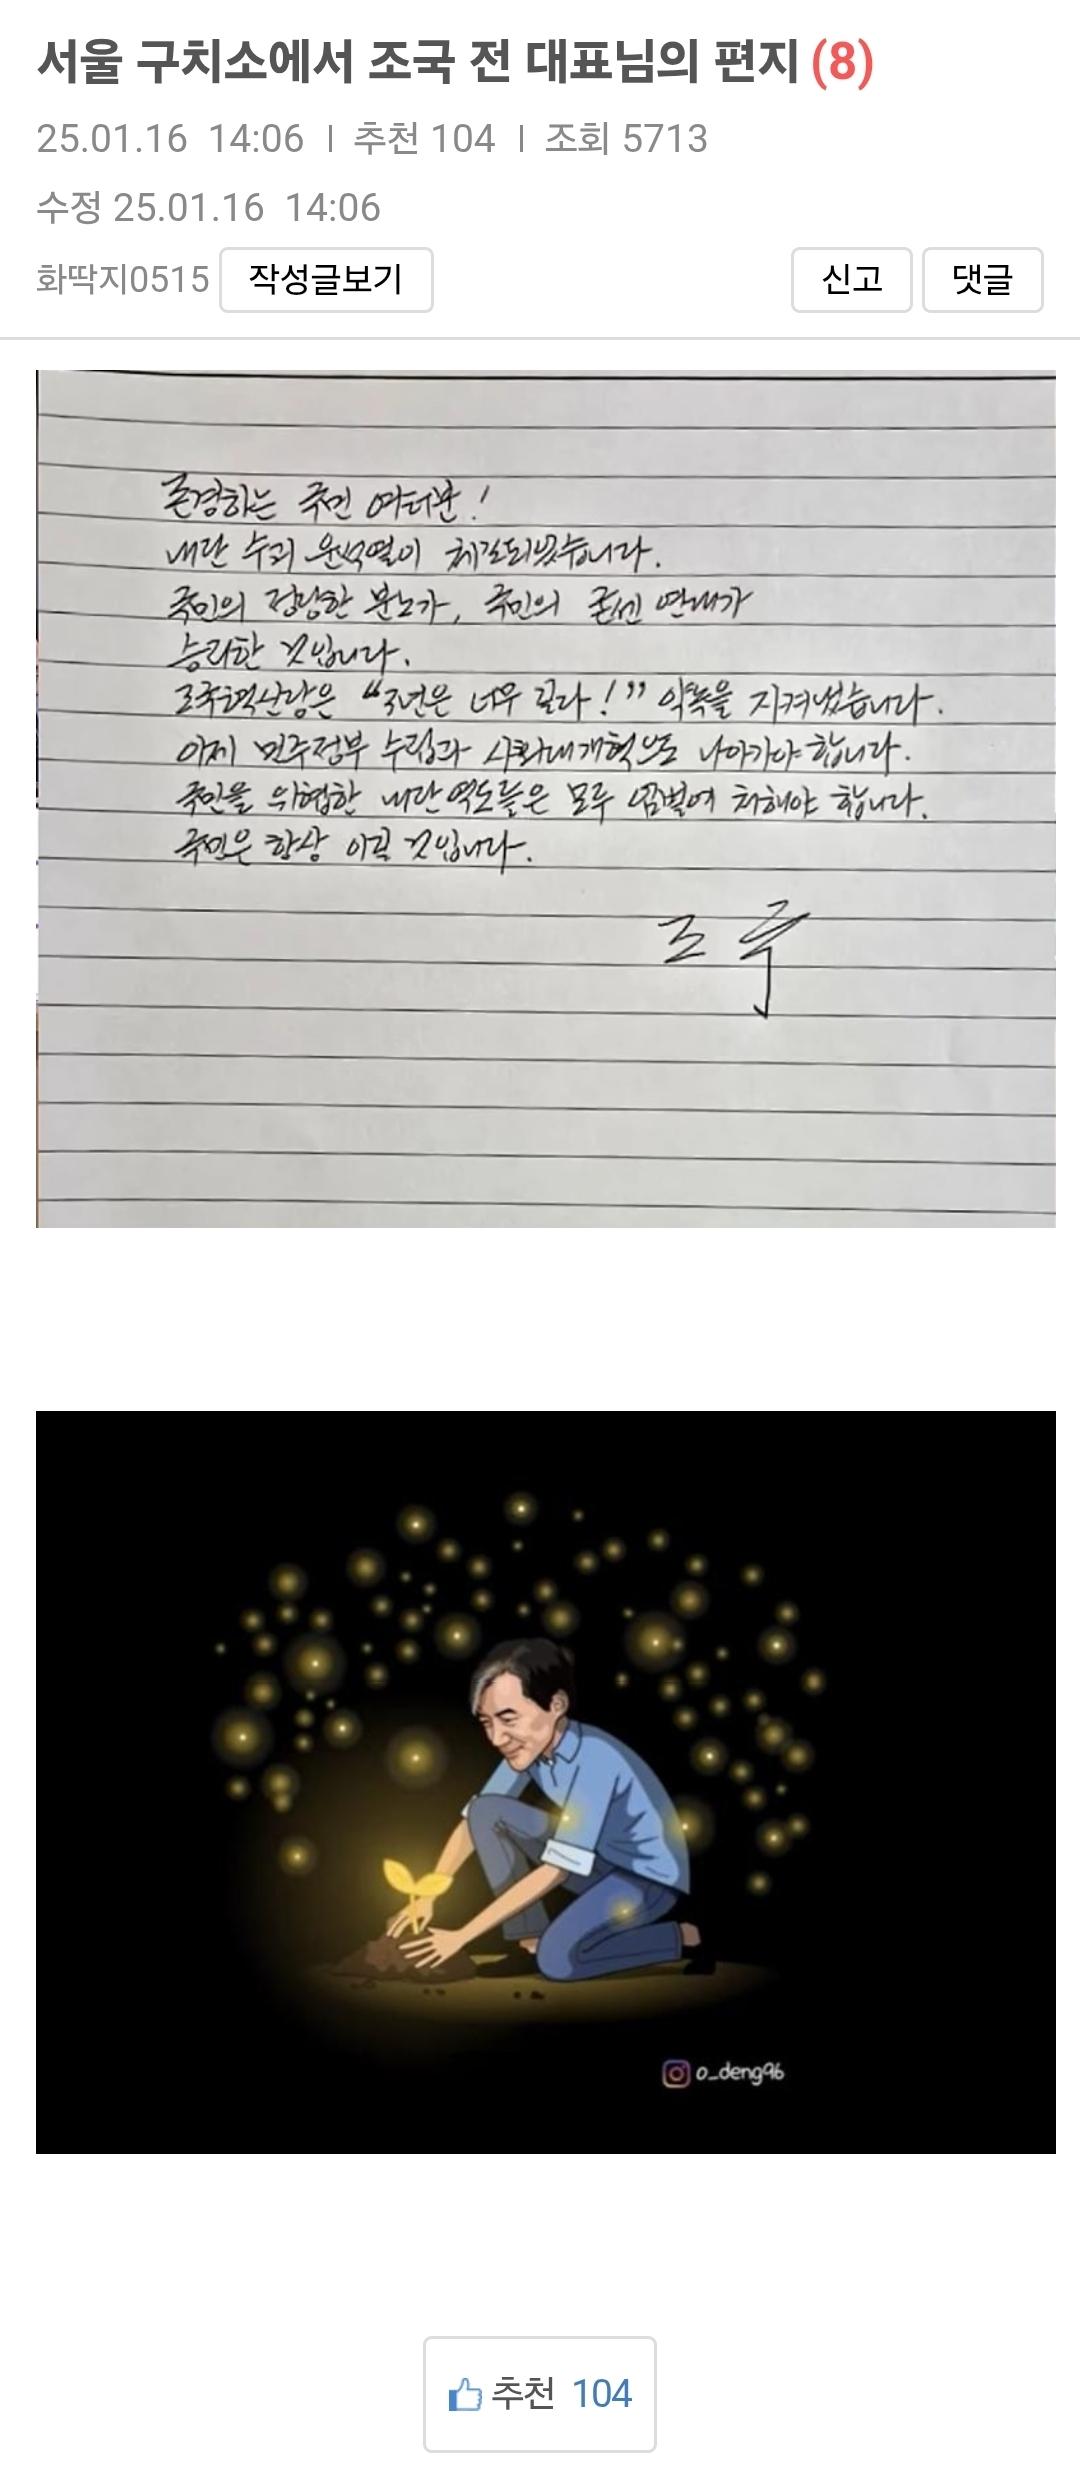 서울 구치소에서 조국 전 대표님의 편지 (8)
25.01.16 14:06 | 추천 104 | 조회 5713
수정 25.01.16 14:06
화딱지0515 작성글보기 신고 댓글
존경하는 국민 여러분!
내란 수괴 윤석열이 체포되었습니다.
국민의 정당한 분노가, 국민의 굳센 연대가
승리한 것입니다.
조국혁신당은 "3년은 너무 길다!" 약속을 지켜냈습니다.
이제 민주정부 수립과 사회대개혁으로 나아가야 합니다.
국민을 위협한 내란 역도들은 모두 엄벌에 처해야 합니다.
국민은 항상 이길 것입니다.
조 국
o_deng96
추천 104